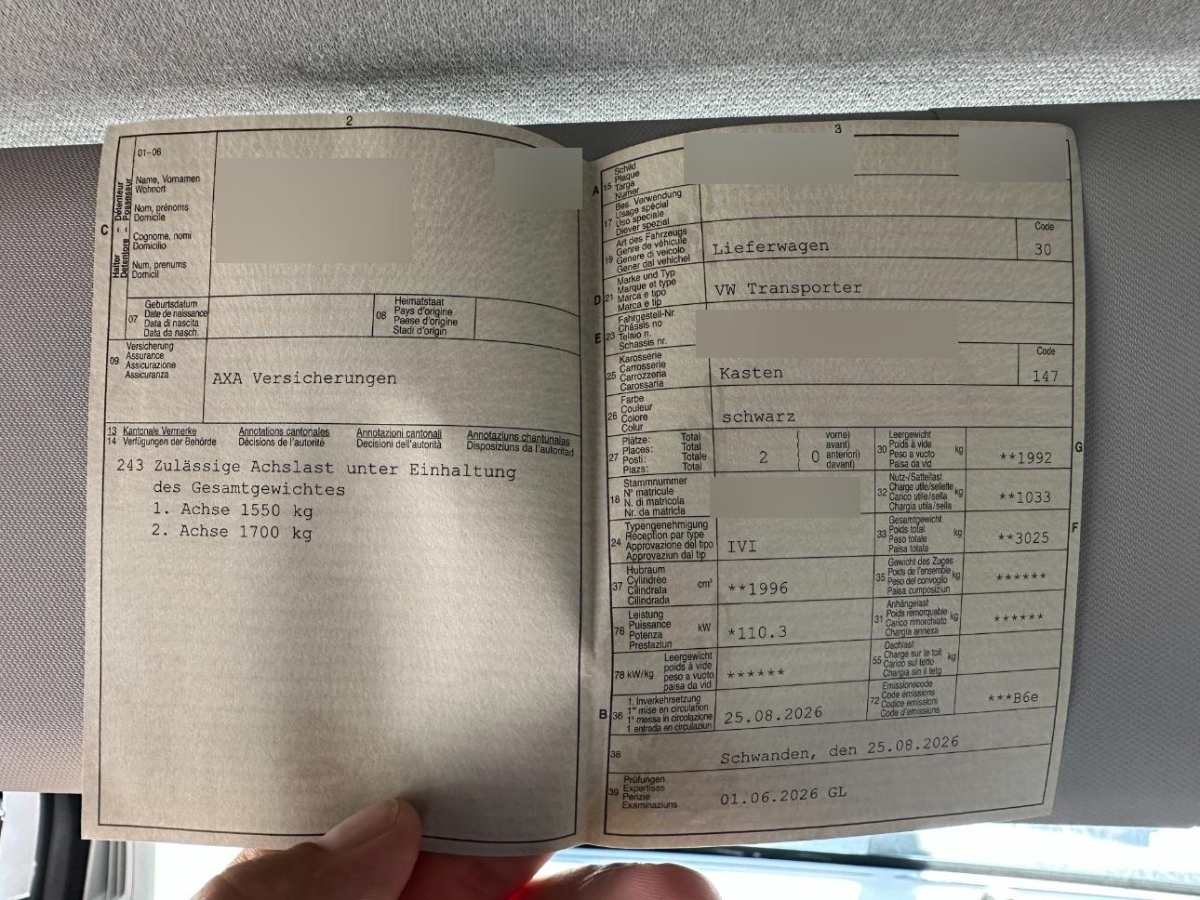 2
01-06
Name, Vornamen
Wohnort
Nom, prénoms
Domicile
Cognome, nomi
Domicilio
Num, prenums
Domicil
C
Halter Détenteur
Detentore Possessur
07
Geburtsdatum
Date de naissance
Data di nascita
Data da nasch.
08
Heimatstaat
Pays d'origine
Paese d'origine
Stadi d'origin
09
Versicherung
Assurance
Assicurazione
Assicuranza
AXA Versicherungen
13 Kantonale Vermerke
14 Verfügungen der Behörde
Annotations cantonales
Décisions de l'autorité
Annotazioni cantonali
Decisioni dell'autorità
Annotaziuns chantunalas
Disposiziuns da l'autoritad
243 Zulässige Achslast unter Einhaltung
des Gesamtgewichtes
1. Achse 1550 kg
2. Achse 1700 kg
3
A
15
Schild
Plaque
Targa
Numer
17
Bes. Verwendung
Usage spécial
Uso speciale
Diever spezial
19
Art des Fahrzeugs
Genre de véhicule
Genere di veicolo
Gener dal vehichel
Lieferwagen
Code
30
D
21
Marke und Typ
Marque et type
Marca e tipo
Marca e tip
VW Transporter
E
23
Fahrgestell-Nr.
Châssis no
Telaio n.
Schassis nr.
25
Karosserie
Carrosserie
Carrozzeria
Carossaria
Kasten
Code
147
26
Farbe
Couleur
Colore
Colur
schwarz
27
Plätze: Total
Places: Total
Posti: Totale
Plazs: Total
2
0
vorne)
avant)
anteriori)
davant)
30
Leergewicht
Poids à vide
Peso a vuoto
Paisa da vid
kg
**1992
G
18
Stammnummer
N° matricule
N. di matricola
Nr. da matricla
32
Nutz-/Sattellast
Charge utile/sellette
Carico utile/sella
Chargia utila/sella
kg
**1033
24
Typengenehmigung
Réception par type
Approvazione del tipo
Approvaziun dal tip
IVI
33
Gesamtgewicht
Poids total
Peso totale
Paisa totala
kg
**3025
F
37
Hubraum
Cylindrée
Cilindrata
Cilindrada
cm³
**1996
35
Gewicht des Zuges
Poids de l'ensemble
Peso del convoglio
Paisa cumposiziun
kg
******
76
Leistung
Puissance
Potenza
Prestaziun
kW
*110.3
31
Anhängelast
Poids remorquable
Carico rimorchiato
Chargia annexa
kg
******
78 kW/kg
Leergewicht
poids à vide
peso a vuoto
paisa da vid
******
55
Dachlast
Charge sur le toit
Carico sul tetto
Chargia sin il tetg
kg
B
36
1. Inverkehrsetzung
1re mise en circulation
1a messa in circolazione
1. entrada en circulaziun
25.08.2026
72
Emissionscode
Code émissions
Codice emissioni
Code d'emissiuns
***B6e
38
Schwanden, den 25.08.2026
39
Prüfungen
Expertises
Perizie
Examinaziuns
01.06.2026 GL